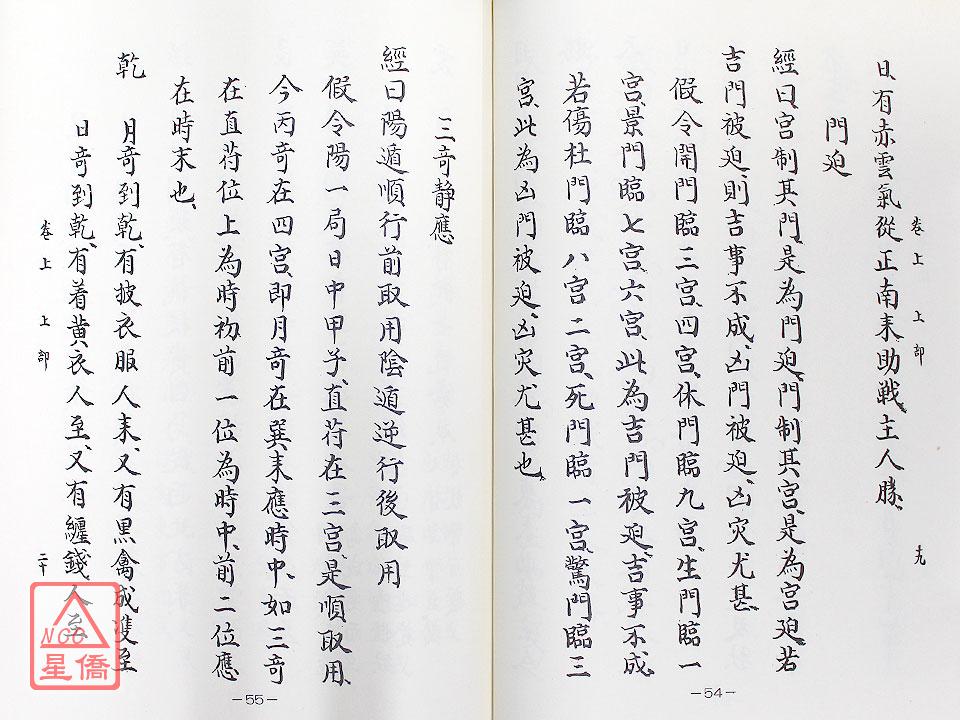 日有赤雲氣從正南来助戰主人勝、
卷上 上部 十九
門迫
經曰宮制其門、是為門迫、門制其宮、是為宮迫、若
吉門被迫、則吉事不成、凶門被迫、凶灾尤甚
假令開門臨三宮、四宮、休門臨九宮、生門臨一
宮、景門臨七宮、六宮、此為吉門被迫、吉事不成、
若傷杜門臨八宮二宮、死門臨一宮、驚門臨三
宮、此為凶門被迫、凶灾尤甚也、
-54-
三奇靜應
經曰陽遁順行前取用陰遁逆行後取用
假令陽一局日中甲子、直苻在三宮、是順取用、
今丙奇在四宮、即月奇在巽来應時中、如三奇
在直苻位上為時初、前一位為時中、前二位應
在時末也、
乾 月奇到乾、有披衣服人来、又有黑禽成進至
日奇到乾、有着黃衣人至、又有纏錢人至
卷上 上部 二十
-55-
NCC
星僑